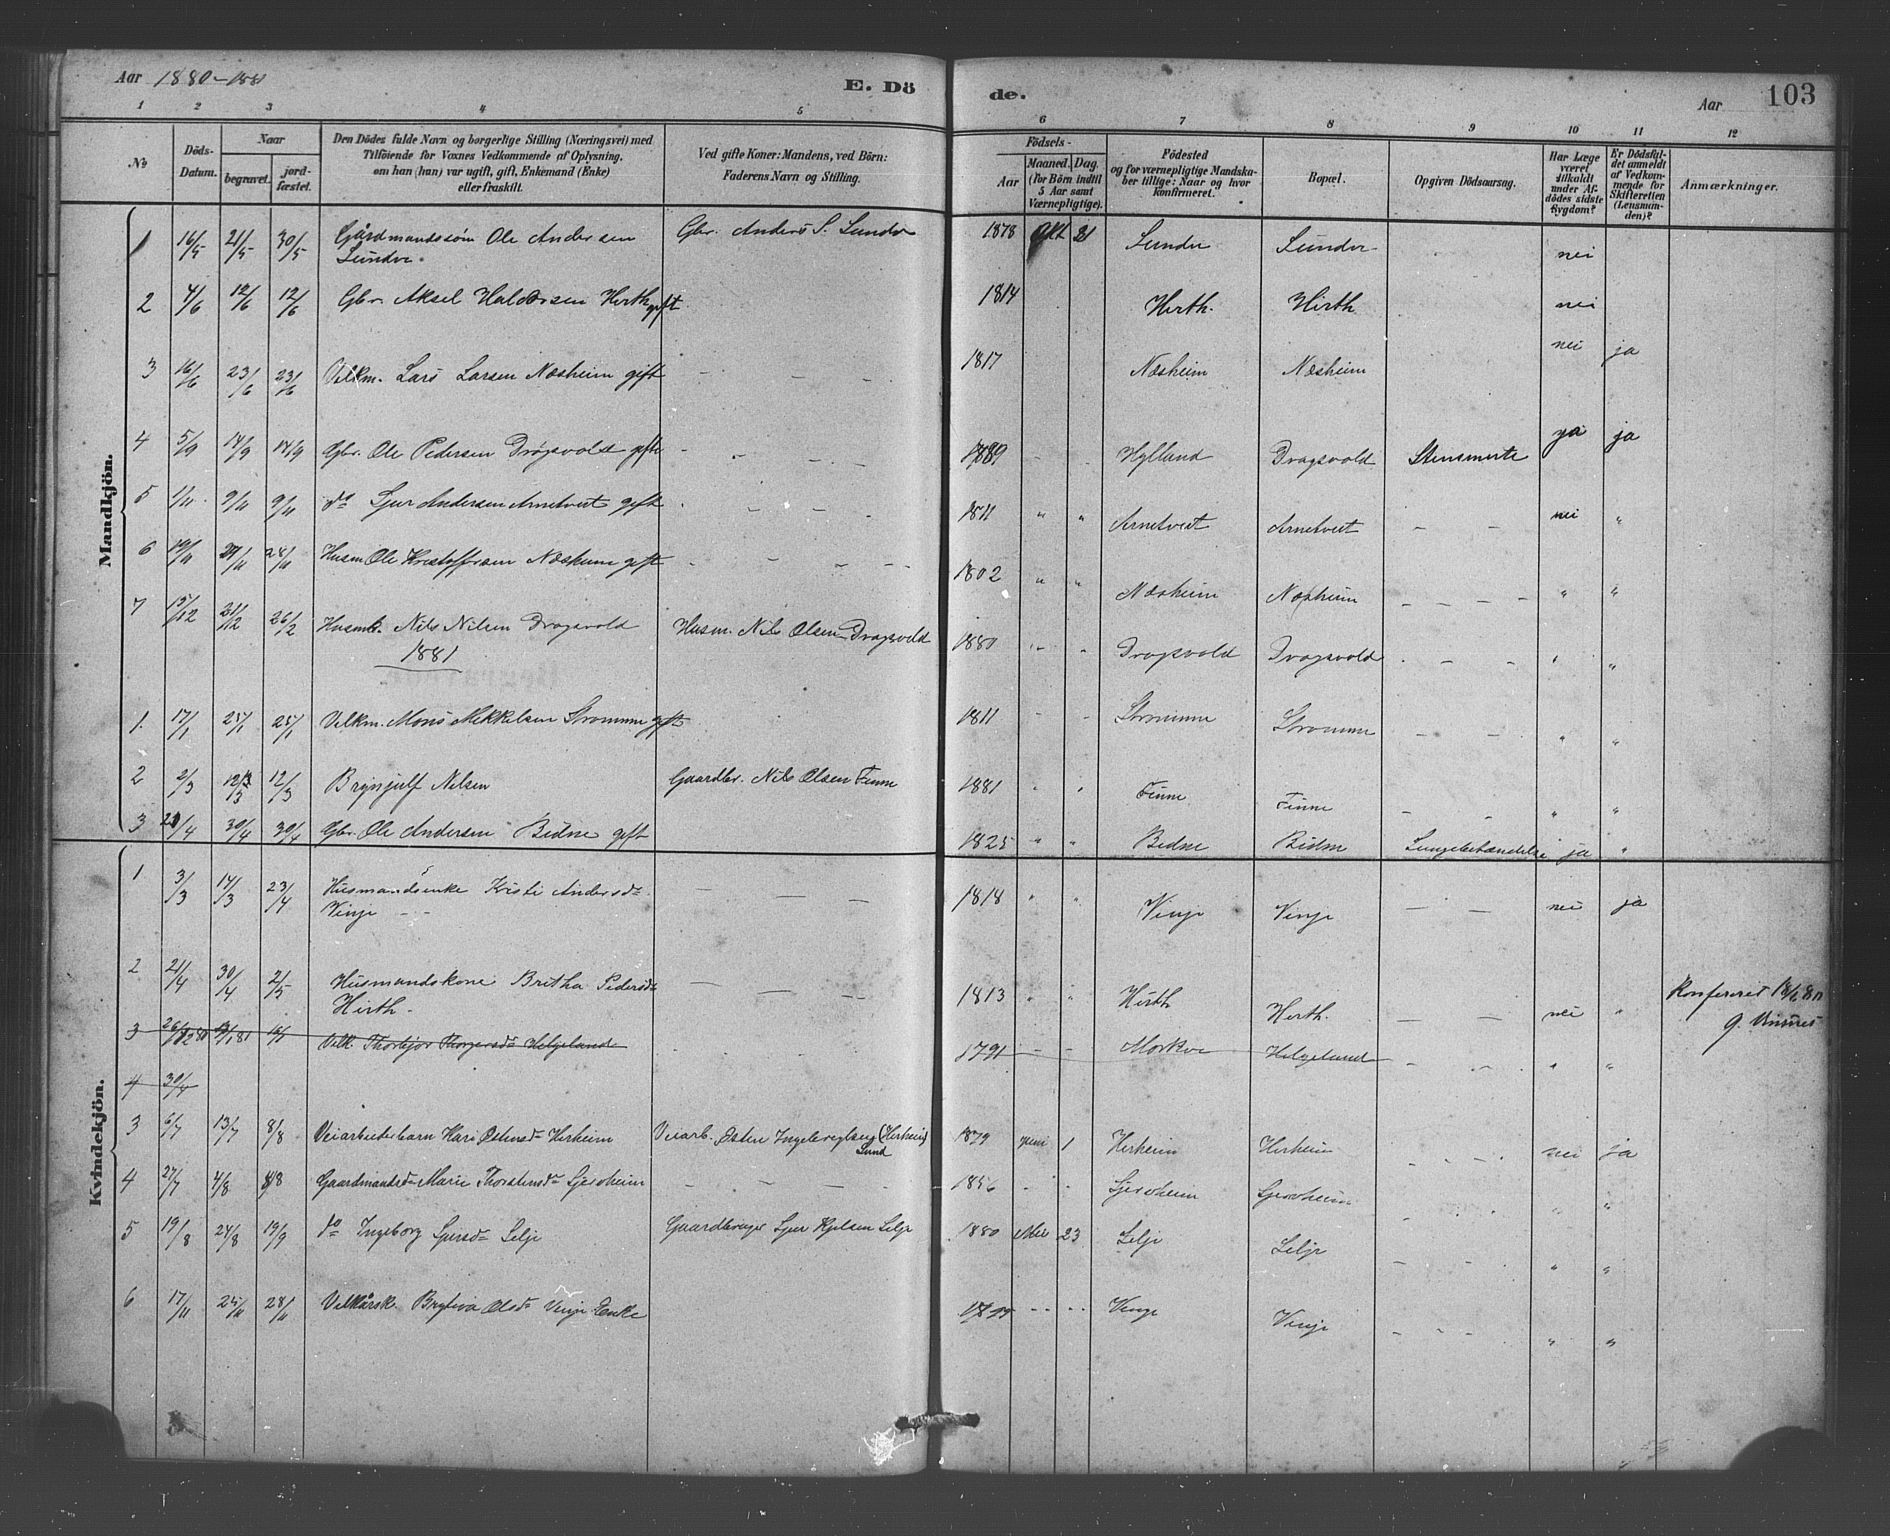 Aar 1880-1881 E. Dö de. Aar 103
1 2 3 4 5 6 7 8 9 10 11 12
No Döds-Datum. Naar begravet. jordfæstet. Den Dödes fulde Navn og borgerlige Stilling (Næringsvei) med Tilföiende for Voxnes Vedkommende af Oplysning, om han (hun) var ugift, gift, Enkemand (Enke) eller fraskilt. Ved gifte Koner: Mandens, ved Börn: Faderens Navn og Stilling. Födsels- Aar Maaned. Dag. (for Börn indtil 5 Aar samt Værnepligtige). Födested og for værnepligtige Mandskaber tillige: Naar og hvor konfirmeret. Bopæl. Opgiven Dödsaarsag. Har Læge været tilkaldt under Afdödes sidste Sygdom? Er Dödsfaldet anmeldt af Vedkommende for Skifteretten (Lensmanden)? Anmærkninger.
Mandkjön.
1 16/5 21/5 30/5 Gårdmandssøn Ole Andersen Gbr. Anders S. Sundve 1878 Okt 21 Sundve Sundve nei
Sundve.
2 4/6 12/6 12/6 Gbr. Aksel Haldorsen Hirth gift 1814 Hirth. Hirth nei
3 16/6 23/6 23/6 Vilkm. Lars Larsen Næsheim gift - - - 1817 Næsheim Næsheim nei ja
4 5/9 14/9 14/9 Gbr. Ole Pedersen Drøgsvold gift - - - 1889 - - Hylland Dragsvold Stensmerte ja ja
5 1/11 9/11 9/11 do Sjur Andersen Arnetveit gift - - - 1811 " " Arnetveit Arnetveit - - nei "
6 19/11 27/11 28/11 Husm Ole Kristoffersen Næsheim gift - - - 1802 " " Næsheim Næsheim - - - - " "
7 15/12 21/12 26/2 Husmb. Nils Nilsen Dragsvold Husm. Nils Olsen Dragsvold 1880 " " Dragsvold Dragsvold - - - " "
1881
1. 17/1 25/1 25/1 Vilkm. Mons Mikkelsen Strømme gift 1811 - - Strømme Strømme - - " "
2 2/3 12/3 12/3 Brynjulf Nilsen Gaardbr. Nils Olsen Finne 1881 " " Finne Finne - - " "
3 20/4 30/4 30/4 Gbr. Ole Andersen Bidne gift 1825 " " Bidne Bidne Lungebetændelse ja "
Kvindekjön.
1 3/3 14/3 23/4 Husmandsenke Kristi Andersdr - - - 1818 " " Vinje Vinje - - nei ja
Vinje - -
2 21/4 30/4 2/5 Husmandskone Britha Pedersdr - - - 1813 " " Hirth Hirth. - - nei " Konfereret 18/6 81
Hirth. G.
3 26/12 80 3/1 81 Vilk. Thorbjør Thorgersdr Helgeland 1791 - - Mørkve Helgeland - - " "
4 30/4
3 6/7 13/7 8/8 Veiarbeiderbarn Kari Østensdr Herheim Veiarb. Østen Ingebregtsen (Herheim) Lund 1879 juni 1 Herheim Herheim - - - nei ja
4 27/7 4/8 8/8 Gaardmandsdr Marie Thorstensdr Gjersheim - - - 1856 " " Gjersheim Gjersheim " "
5 19/8 24/8 19/9 do Ingeborg Sjursdr Lilje Gaardbruger Sjur Lilje 1880 Mai 23 Lilje Lilje - - - " "
6 17/11 25/11 28/11 Vilkårsk. Brytiva Olsdr Vinje Enke " " Vinje Vinje - - - " "